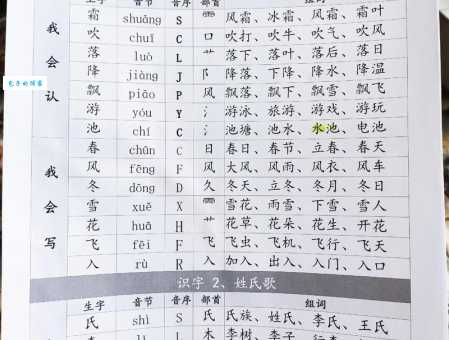 生字 音节 音序 部首 组词
霜 shuāng S 雨 风霜、冰霜、风霜、霜叶
吹 chuī C 口 吹打、吹牛、吹气、吹风
落 luò L 艹 落下、落叶、落后、落日
降 jiàng J 阝 降落、下降、降水、降温
飘 piāo P 风 飘落、飘下、飘雪、飘飞
游 yóu Y 氵 游泳、旅游、游戏、游玩
池 chí C 氵 池塘、池水、水池、电池
春 chūn C 日 春日、春节、立春、春天
风 fēng F 风 大风、风雨、风衣、风车
冬 dōng D 夂 冬天、立冬、冬月、冬日
雪 xuě X 雨 雪花、雨雪、下雪、雪人
花 huā H 艹 花草、花朵、花生、开花
飞 fēi F 飞 飞虫、飞机、飞行、飞天
入 rù R 入 加入、出入、入门、入口
我会认
我会写
识字 2、姓氏歌
生字 音节 音序 部首 组词
氏 shì S 氏 氏族、姓氏、李氏、王氏
李 L 木 李树、李子